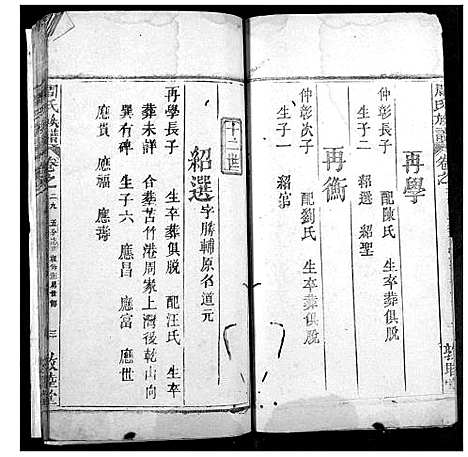 周氏族譜
卷之
再學
仲彰長子　配陳氏　生卒葬俱脫
生子二　紹選　紹聖
再衡
仲彰次子　配劉氏　生卒葬俱脫
生子一　紹官
十二世
紹選 字勝輔原名道元
再學長子　生卒葬俱脫　配汪氏　生卒
葬未詳　合葬苦竹港周家上灣後乾山向
巽有碑　生子六　應昌　應富　應世
應貴　應福　應壽
周氏族譜
卷之
三
敦睦堂